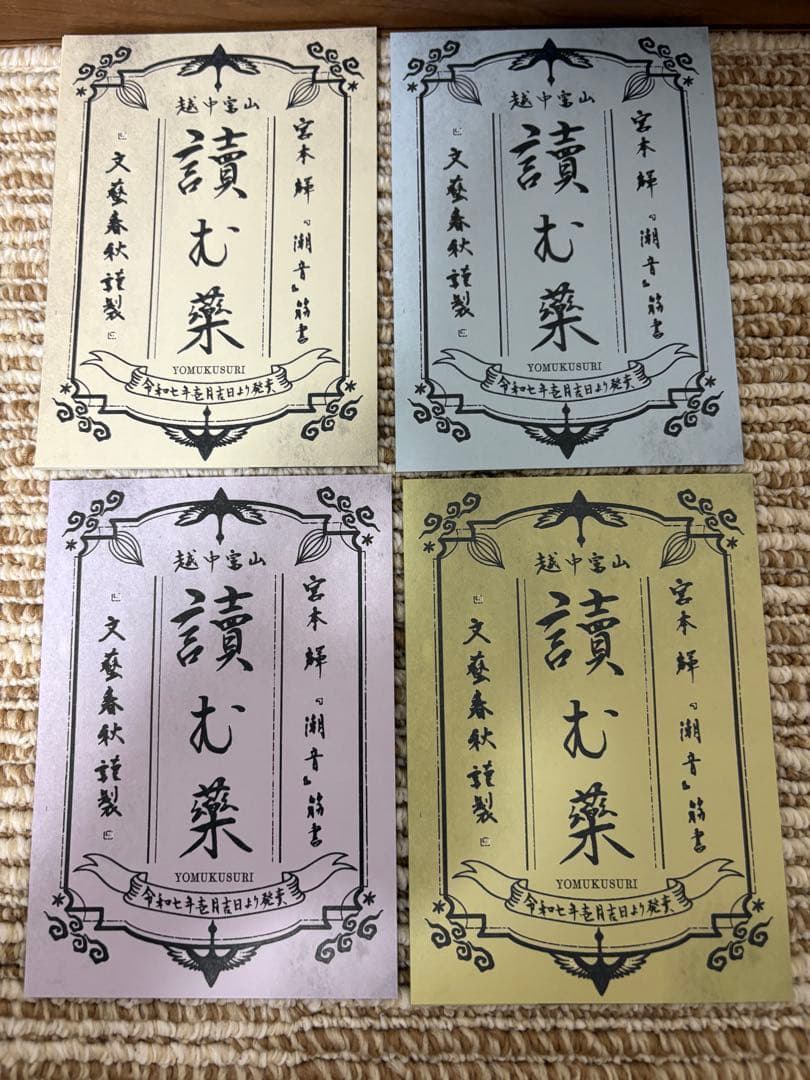 越中富山
宮本輝『潮音』筋書
讀む藥
文藝春秋謹製
YOMUKUSURI
令和七年壱月吉日より発売
越中富山
宮本輝『潮音』筋書
讀む藥
文藝春秋謹製
YOMUKUSURI
令和七年壱月吉日より発売
越中富山
宮本輝『潮音』筋書
讀む藥
文藝春秋謹製
YOMUKUSURI
令和七年壱月吉日より発売
越中富山
宮本輝『潮音』筋書
讀む藥
文藝春秋謹製
YOMUKUSURI
令和七年壱月吉日より発売